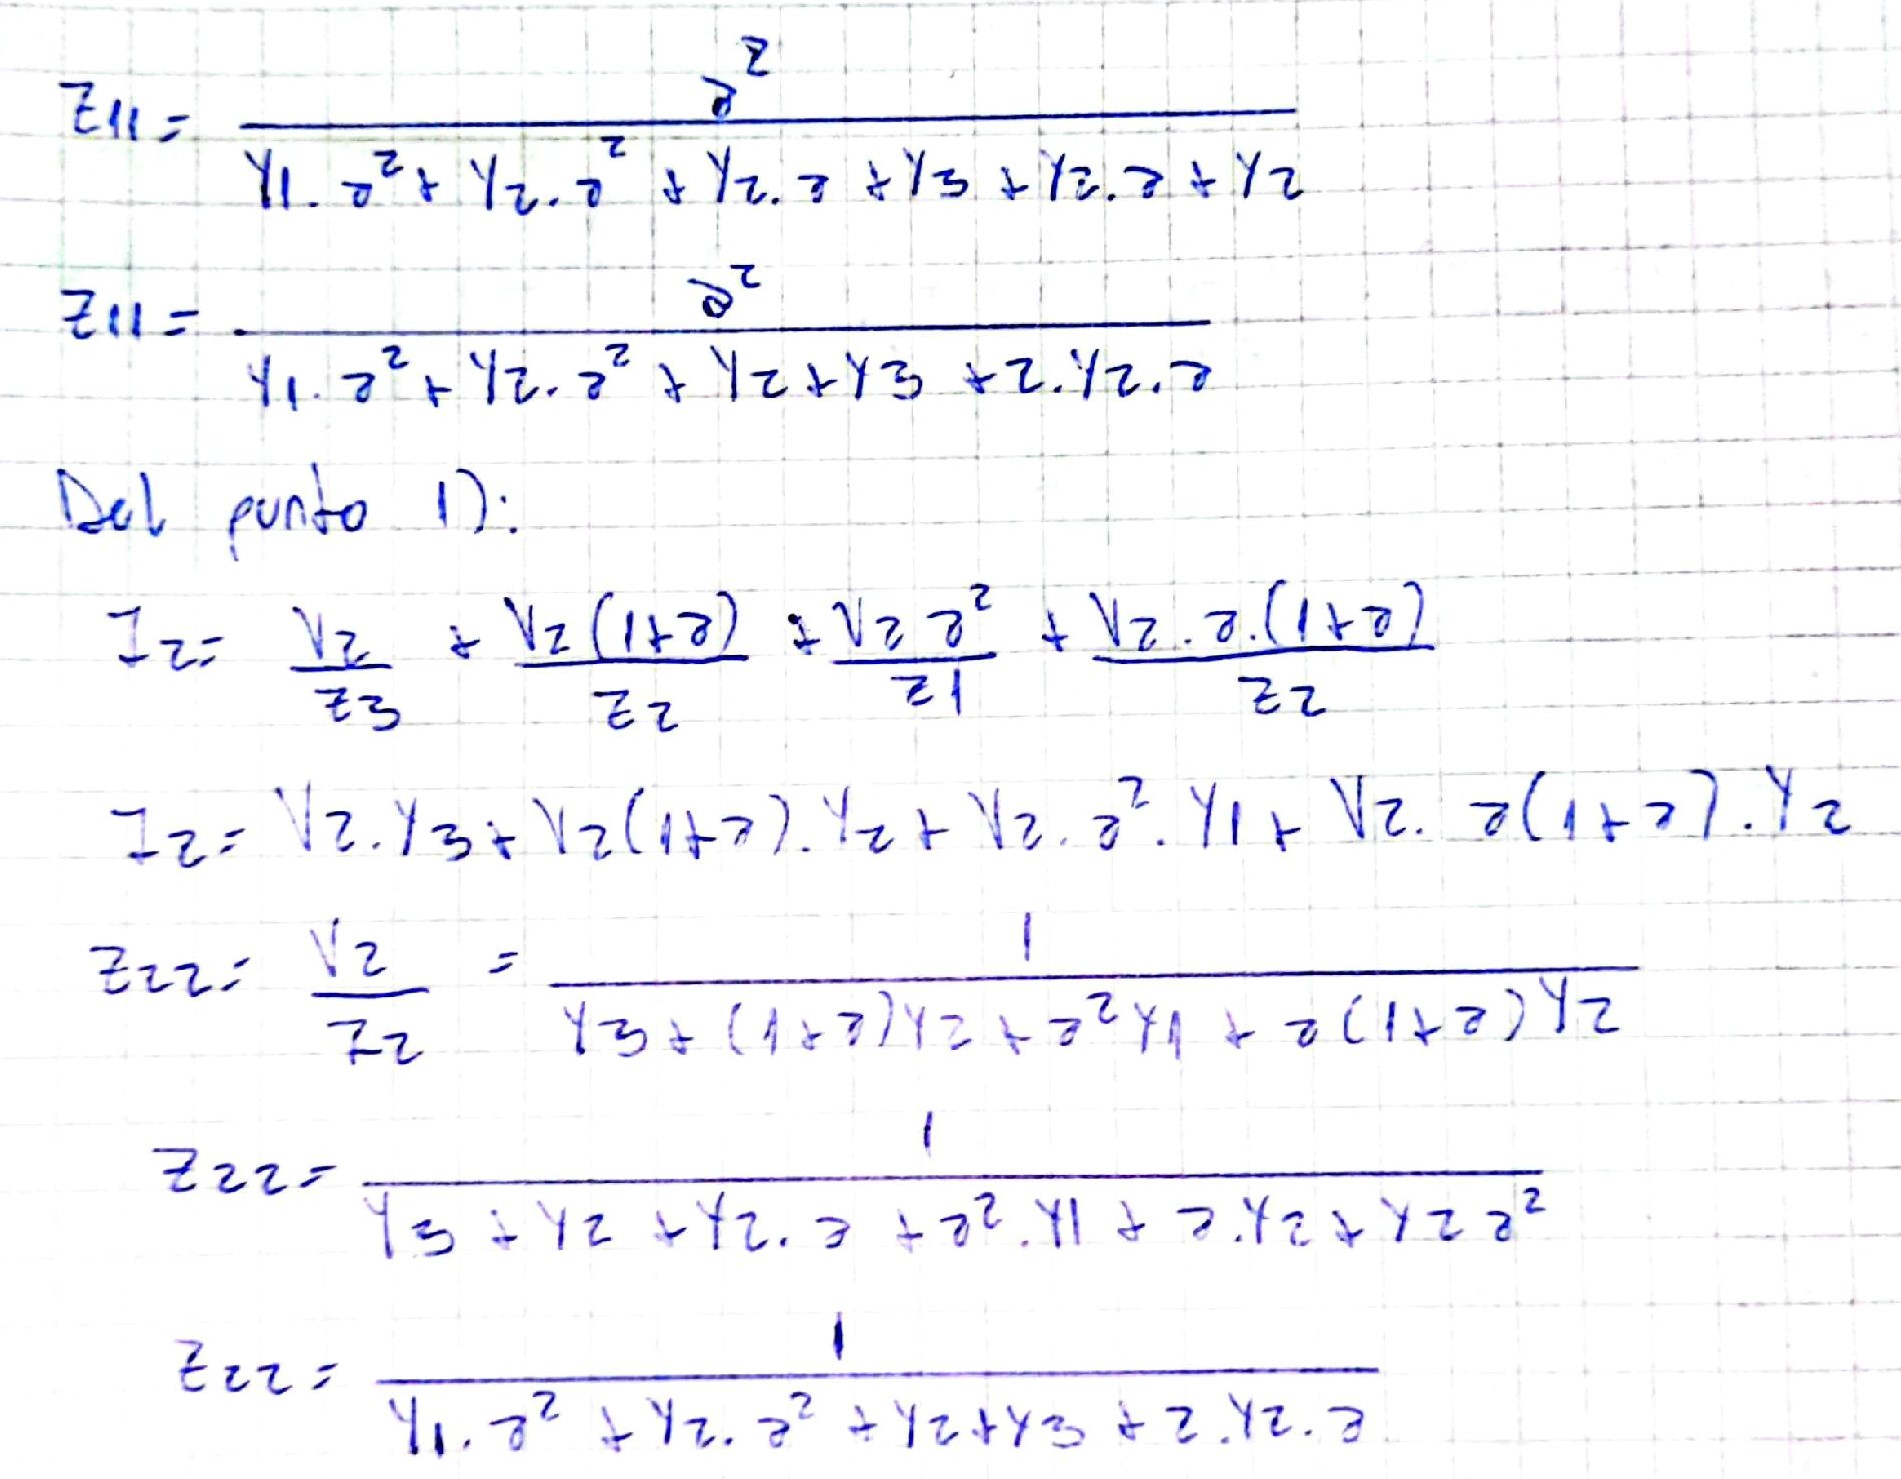 Z11 = a² / (Y1.a² + Y2.a² + Y2.a + Y3 + Y2.a + Y2)
Z11 = a² / (Y1.a² + Y2.a² + Y2 + Y3 + 2.Y2.a)
Del punto 1):
I2 = V2/Z3 + V2(1+a)/Z2 + V2 a²/Z1 + V2.a.(1+a)/Z2
I2 = V2.Y3 + V2(1+a).Y2 + V2.a².Y1 + V2.a(1+a).Y2
Z22 = V2/I2 = 1 / (Y3 + (1+a)Y2 + a²Y1 + a(1+a)Y2)
Z22 = 1 / (Y3 + Y2 + Y2.a + a².Y1 + a.Y2 + Y2 a²)
Z22 = 1 / (Y1.a² + Y2.a² + Y2 + Y3 + 2.Y2.a)